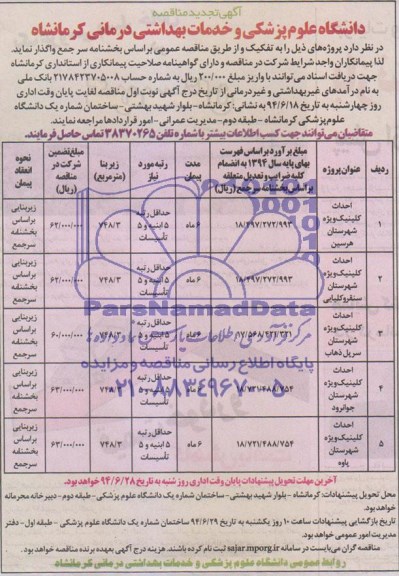 آگهی تجدید مناقصه
دانشگاه علوم پزشکی و خدمات بهداشتی درمانی کرمانشاه
در نظر دارد پروژه‌های ذیل را به تفکیک و از طریق مناقصه عمومی براساس بخشنامه سر جمع واگذار نماید.
لذا پیمانکاران واجد شرایط شرکت در مناقصه و دارای گواهینامه صلاحیت پیمانکاری از استانداری کرمانشاه
جهت دریافت اسناد می‌توانند با واریز مبلغ ۲۰۰/۰۰۰ ریال به شماره حساب ۲۱۷۸۴۲۳۷۰۵۰۰۸ بانک ملی
به نام درآمدهای غیربهداشتی و غیردرمانی از تاریخ درج آگهی نوبت اول مناقصه لغایت پایان وقت اداری
روز چهارشنبه به تاریخ ۹۴/۶/۱۸ به نشانی: کرمانشاه - بلوار شهید بهشتی - ساختمان شماره یک دانشگاه
علوم پزشکی کرمانشاه - طبقه دوم - مدیریت عمرانی - امور قراردادها مراجعه نمایند.
متقاضیان می‌توانند جهت کسب اطلاعات بیشتر با شماره تلفن ۳۸۳۷۰۲۶۵ تماس حاصل فرمایند.
ردیف عنوان پروژه مبلغ برآورد براساس فهرست بهای پایه سال ۱۳۹۴ به انضمام کلیه ضرایب و تعدیل متعلقه براساس بخشنامه سرجمع (ریال) مدت پیمان رتبه مورد نیاز زیربنا (مترمربع) مبلغ تضمین شرکت در مناقصه (ریال) نحوه انعقاد پیمان
۱ احداث کلینیک ویژه شهرستان هرسین ۱۸/۲۹۷/۲۷۲/۹۹۳ ۶ ماه حداقل رتبه ۵ ابنیه و ۵ تأسیسات ۷۴۸/۳ ۶۲/۰۰۰/۰۰۰ زیربنایی براساس بخشنامه سرجمع
۲ احداث کلینیک ویژه شهرستان سنقروکلیایی ۱۸/۲۹۷/۲۷۲/۹۹۳ ۶ ماه حداقل رتبه ۵ ابنیه و ۵ تأسیسات ۷۴۸/۳ ۶۲/۰۰۰/۰۰۰ زیربنایی براساس بخشنامه سرجمع
۳ احداث کلینیک ویژه شهرستان سرپل ذهاب ۶ ماه حداقل رتبه ۵ ابنیه و ۵ تأسیسات ۷۴۸/۳ ۶۰/۰۰۰/۰۰۰ زیربنایی براساس بخشنامه سرجمع
۴ احداث کلینیک ویژه شهرستان جوانرود ۱۸/۷۲۱/۴۸۸/۷۵۴ حداقل رتبه ۵ ابنیه و ۵ تأسیسات ۶۳/۰۰۰/۰۰۰ زیربنایی براساس بخشنامه سرجمع
۵ احداث کلینیک ویژه شهرستان پاوه ۱۸/۷۲۱/۴۸۸/۷۵۴ ۶ ماه حداقل رتبه ۵ ابنیه و ۵ تأسیسات ۷۴۸/۳ ۶۳/۰۰۰/۰۰۰ زیربنایی براساس بخشنامه سرجمع
ParsNamadData
پایگاه اطلاع رسانی مناقصه و مزایده
۰۲۱-۸۸۳۴۹۶۷۰-۵
آخرین مهلت تحویل پیشنهادات پایان وقت اداری روز شنبه به تاریخ ۹۴/۶/۲۸ خواهد بود.
محل تحویل پیشنهادات: کرمانشاه - بلوار شهید بهشتی - ساختمان شماره یک دانشگاه علوم پزشکی - طبقه دوم - دبیرخانه محرمانه
خواهد بود.
تاریخ بازگشایی پیشنهادات ساعت ۱۰ روز یکشنبه به تاریخ ۹۴/۶/۲۹ ساختمان شماره یک دانشگاه علوم پزشکی - طبقه اول - دفتر
مدیریت امور عمومی خواهد بود.
مناقصه گران می‌بایست در سامانه sajar.mporg.ir ثبت نام کرده باشند. هزینه درج آگهی بعهده برنده مناقصه خواهد بود.
روابط عمومی دانشگاه علوم پزشکی و خدمات بهداشتی درمانی کرمانشاه